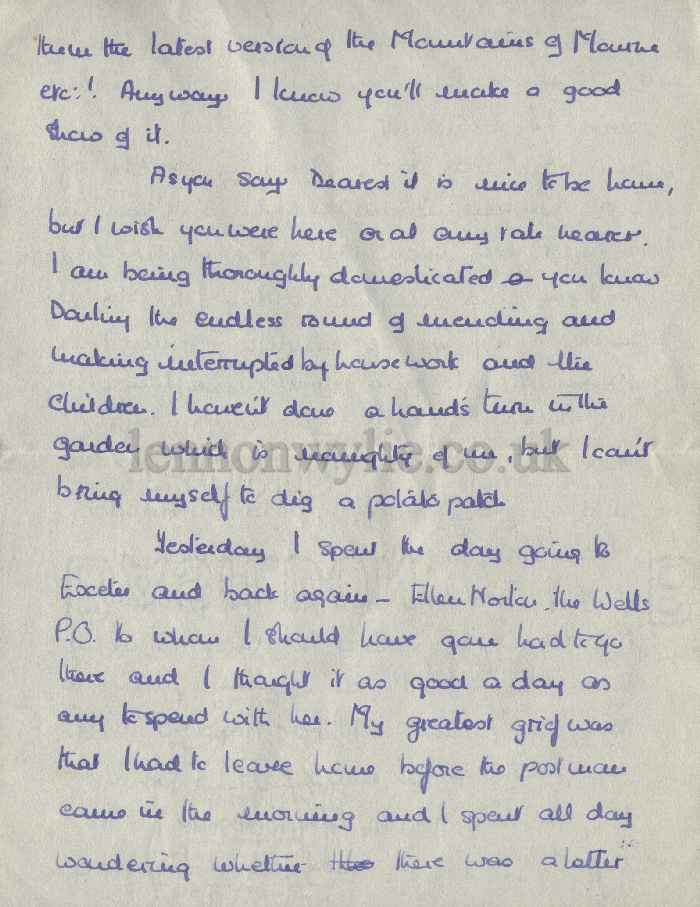 them the latest version of the Mountains of Mourne
etc:! Anyways I know you'll make a good
show of it.
As you say Dearest it is nice to be home,
but I wish you were here or at any rate nearer.
I am being thoroughly domesticated you know
Darling the endless round of mending and
making interrupted by housework and the
children. I haven't done a hand's turn in the
garden which is naughty of me, but I can't
bring myself to dig a potato patch
lennonwylie.co.uk
Yesterday I spent the day going to
Exeter and back again - Ellen Norton, the Wells
P.O. to whom I should have gone had to go
there and I thought it as good a day as
any to spend with her. My greatest grief was
that I had to leave home before the postman
came in the morning and I spent all day
wondering whether there was a letter